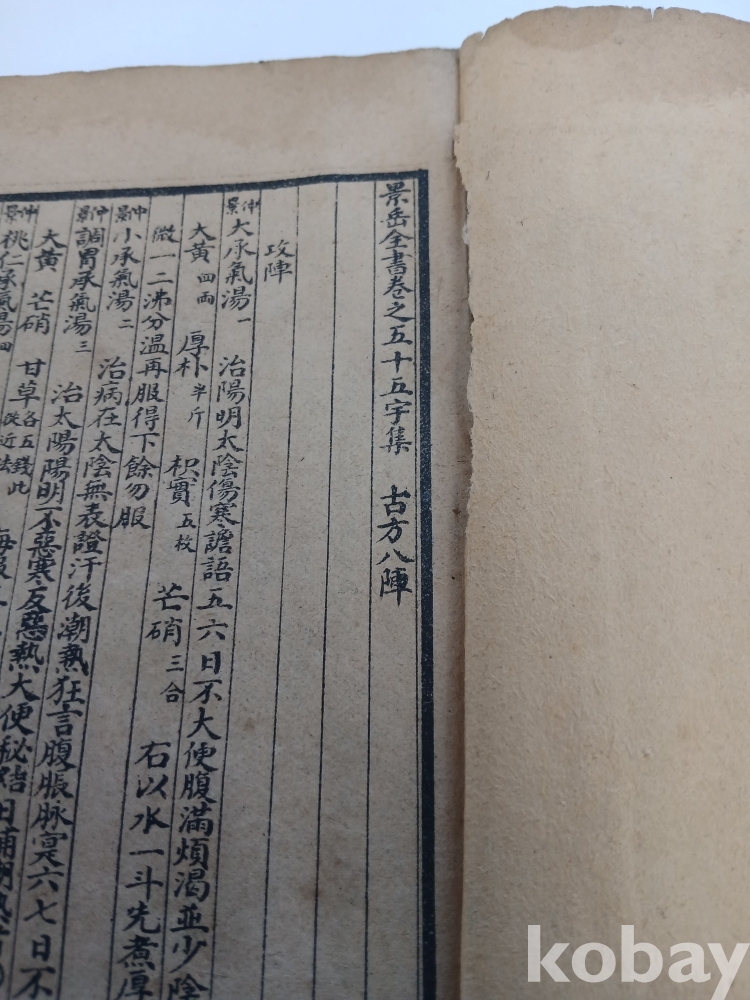 景岳全書卷之五十五宇集 古方八陣
攻陣
仲景大承氣湯一 治陽明太陰傷寒譫語五六日不大便腹滿煩渴並少陰
大黃四兩 厚朴半斤 枳實五枚 芒硝三合 右以水一斗先煮厚
微一二沸分溫再服得下餘勿服
仲景小承氣湯二 治病在太陰無表證汗後潮熱狂言腹脹脉寔六七日不
仲景調胃承氣湯三 治太陽陽明不惡寒反惡熱大便秘結日晡潮熱者
大黃 芒硝 甘草各五錢此 從近法 每服
仲景桃仁承氣湯四
kobay